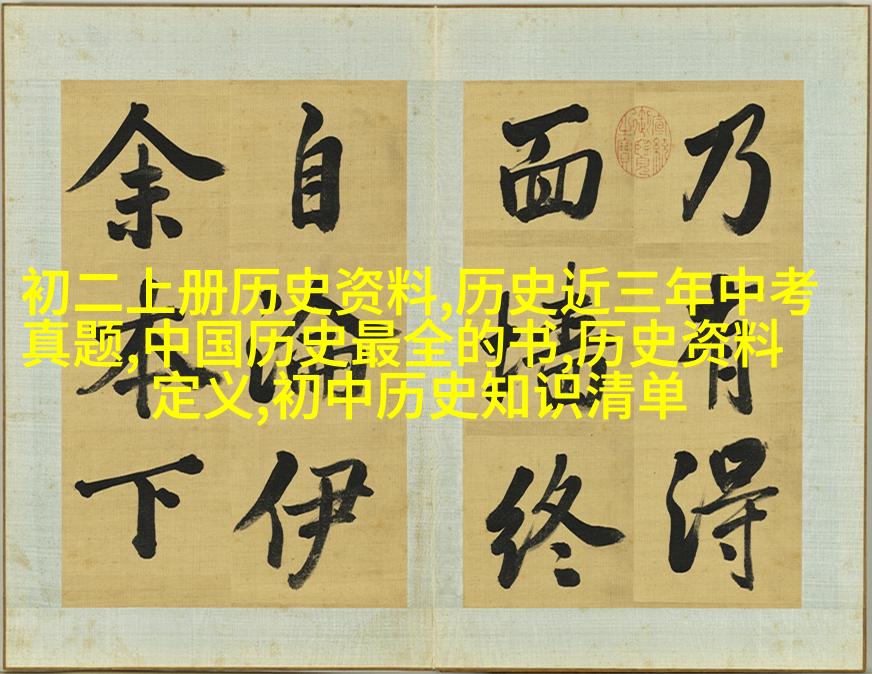 初二上册历史资料,历史近三年中考
真题,中国历史最全的书,历史资料
定义,初中历史知识清单
乃有得
面墻終
自淪伊
余本下